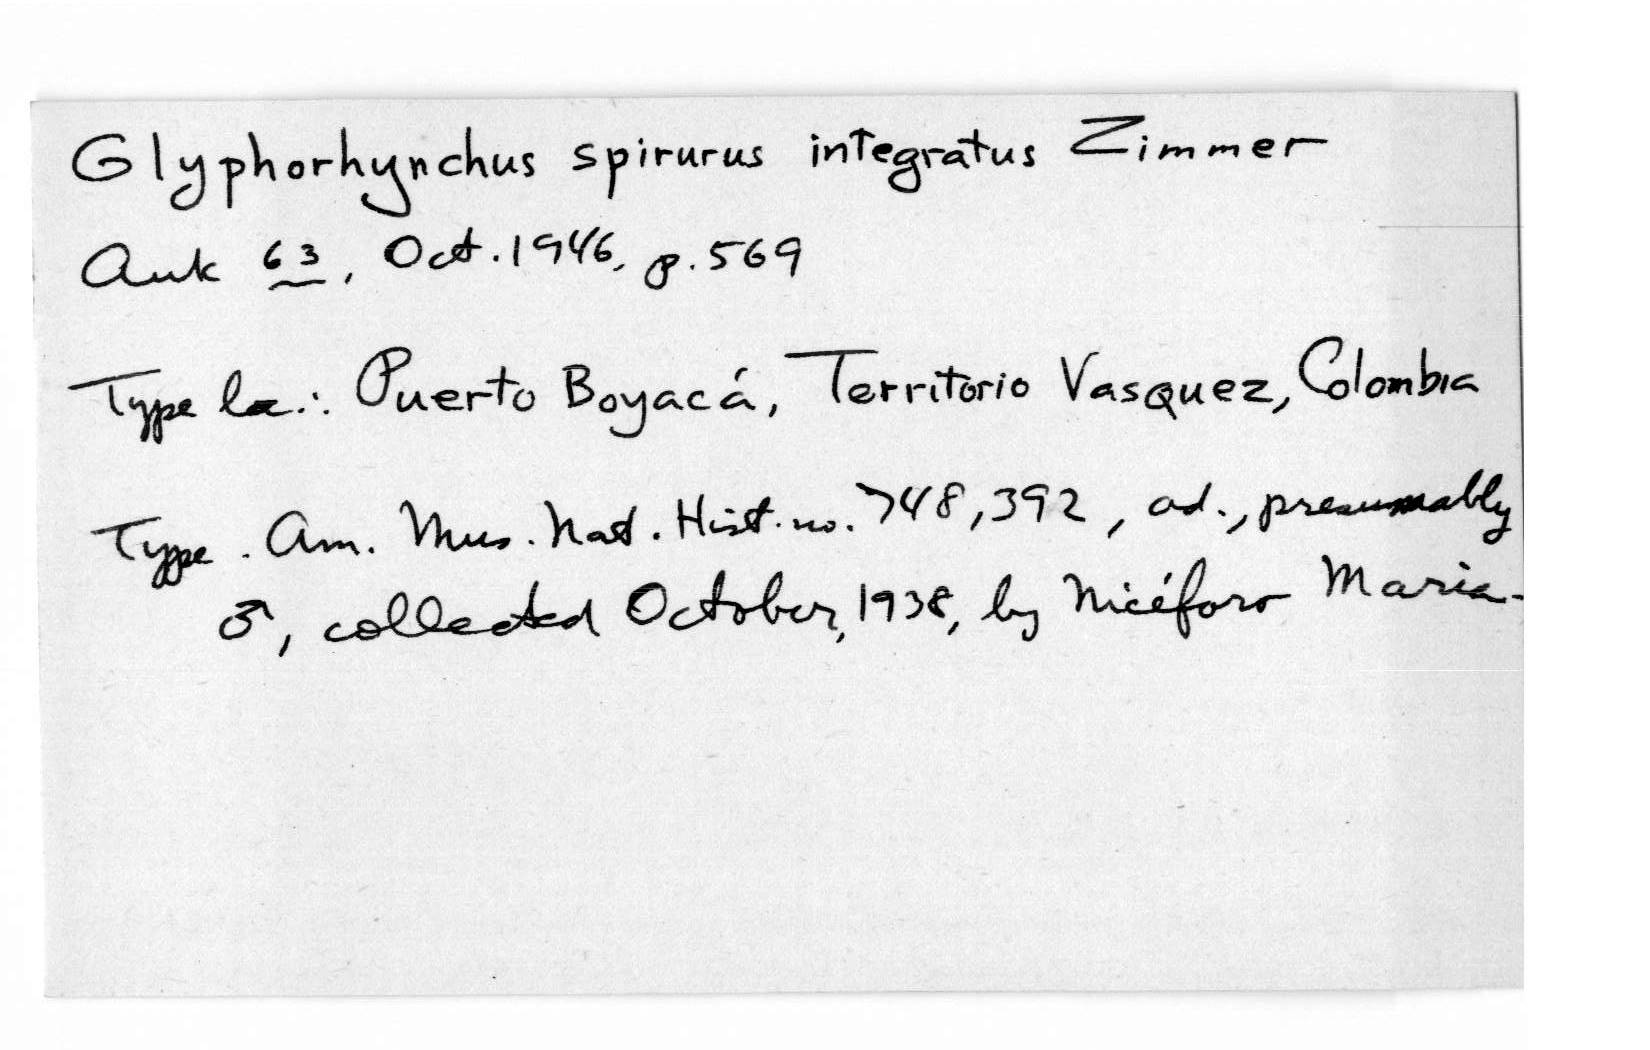 Glyphorhynchus spirurus integratus Zimmer
Auk 63, Oct. 1946, p. 569
Type loc.: Puerto Boyacá, Territorio Vasquez, Colombia
Type. Am. Mus. Nat. Hist. no. 748,392, ad., presumably
♂, collected October, 1938, by Nicéforo Maria.